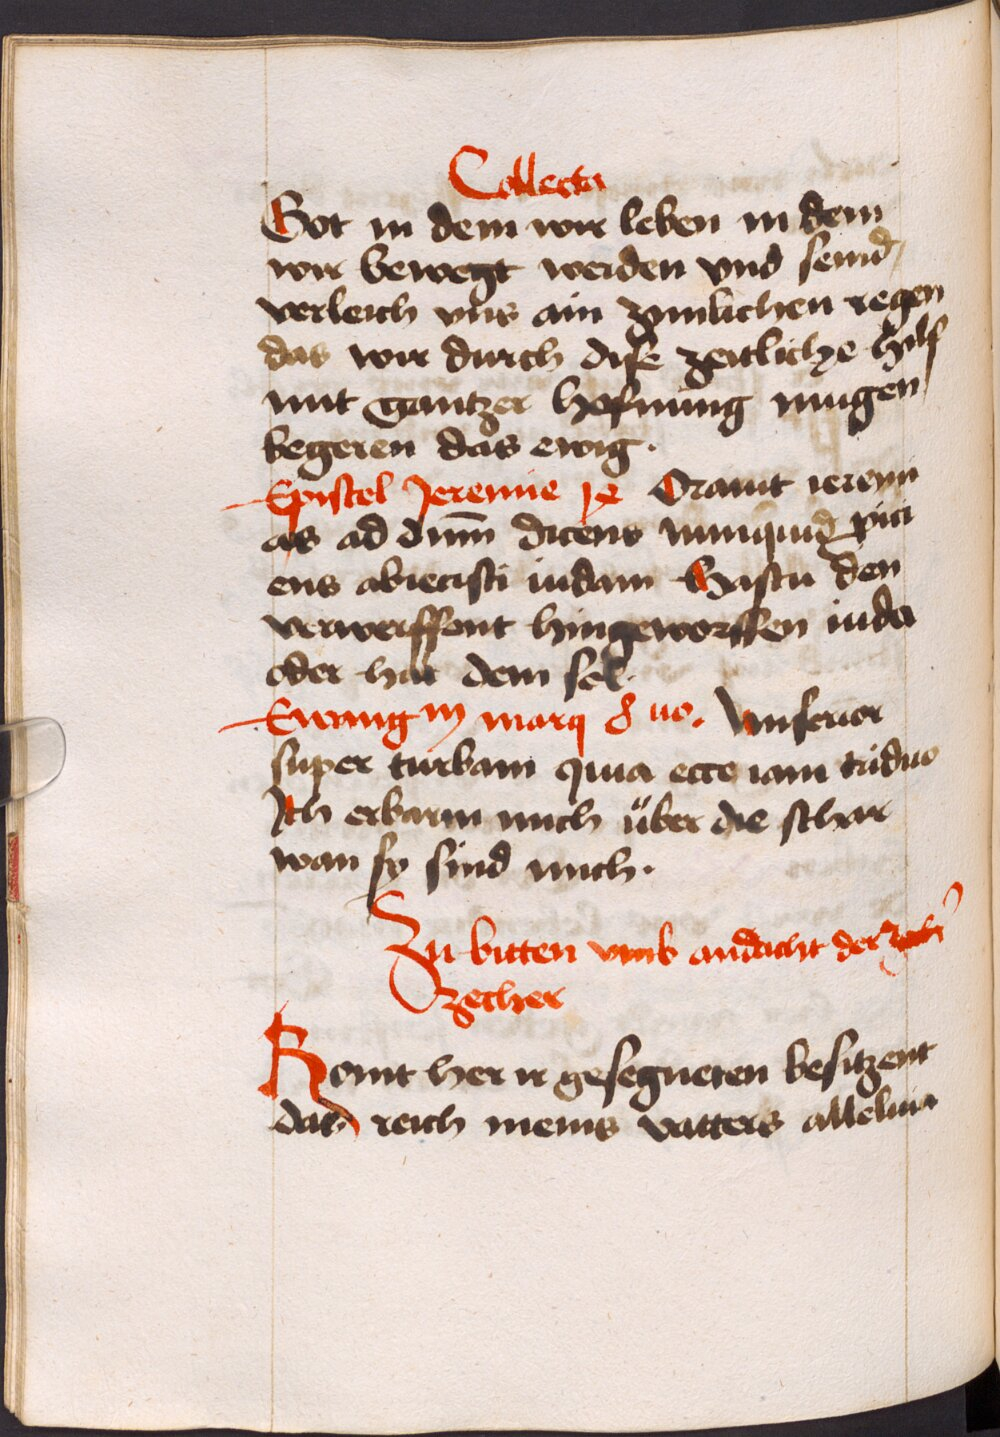 Collecta
Got in dem wir leben in dem
wir bewegt werden vnd seind
verleich vns ain zimlichen regen
das wir durch dise zeitliche hilf
mit gantzer hofnung mugen
begeren das ewig.
Epistel Jeremie Orauit ieremi
as ad dnm̄ dicens nunquid pici
ens abiecisti iudam Hastu den
verwerffent hingeworffen iuda
oder hat dem sel.
Ewang marq Misereor
super turbam quia ecce iam triduo
Ich erbarm mich über die schar
wan sy sind mich.
Zu bitten vmb andacht der
zecher
Komt her ir gesegneten besitzent
das reich meins vatters alleluia